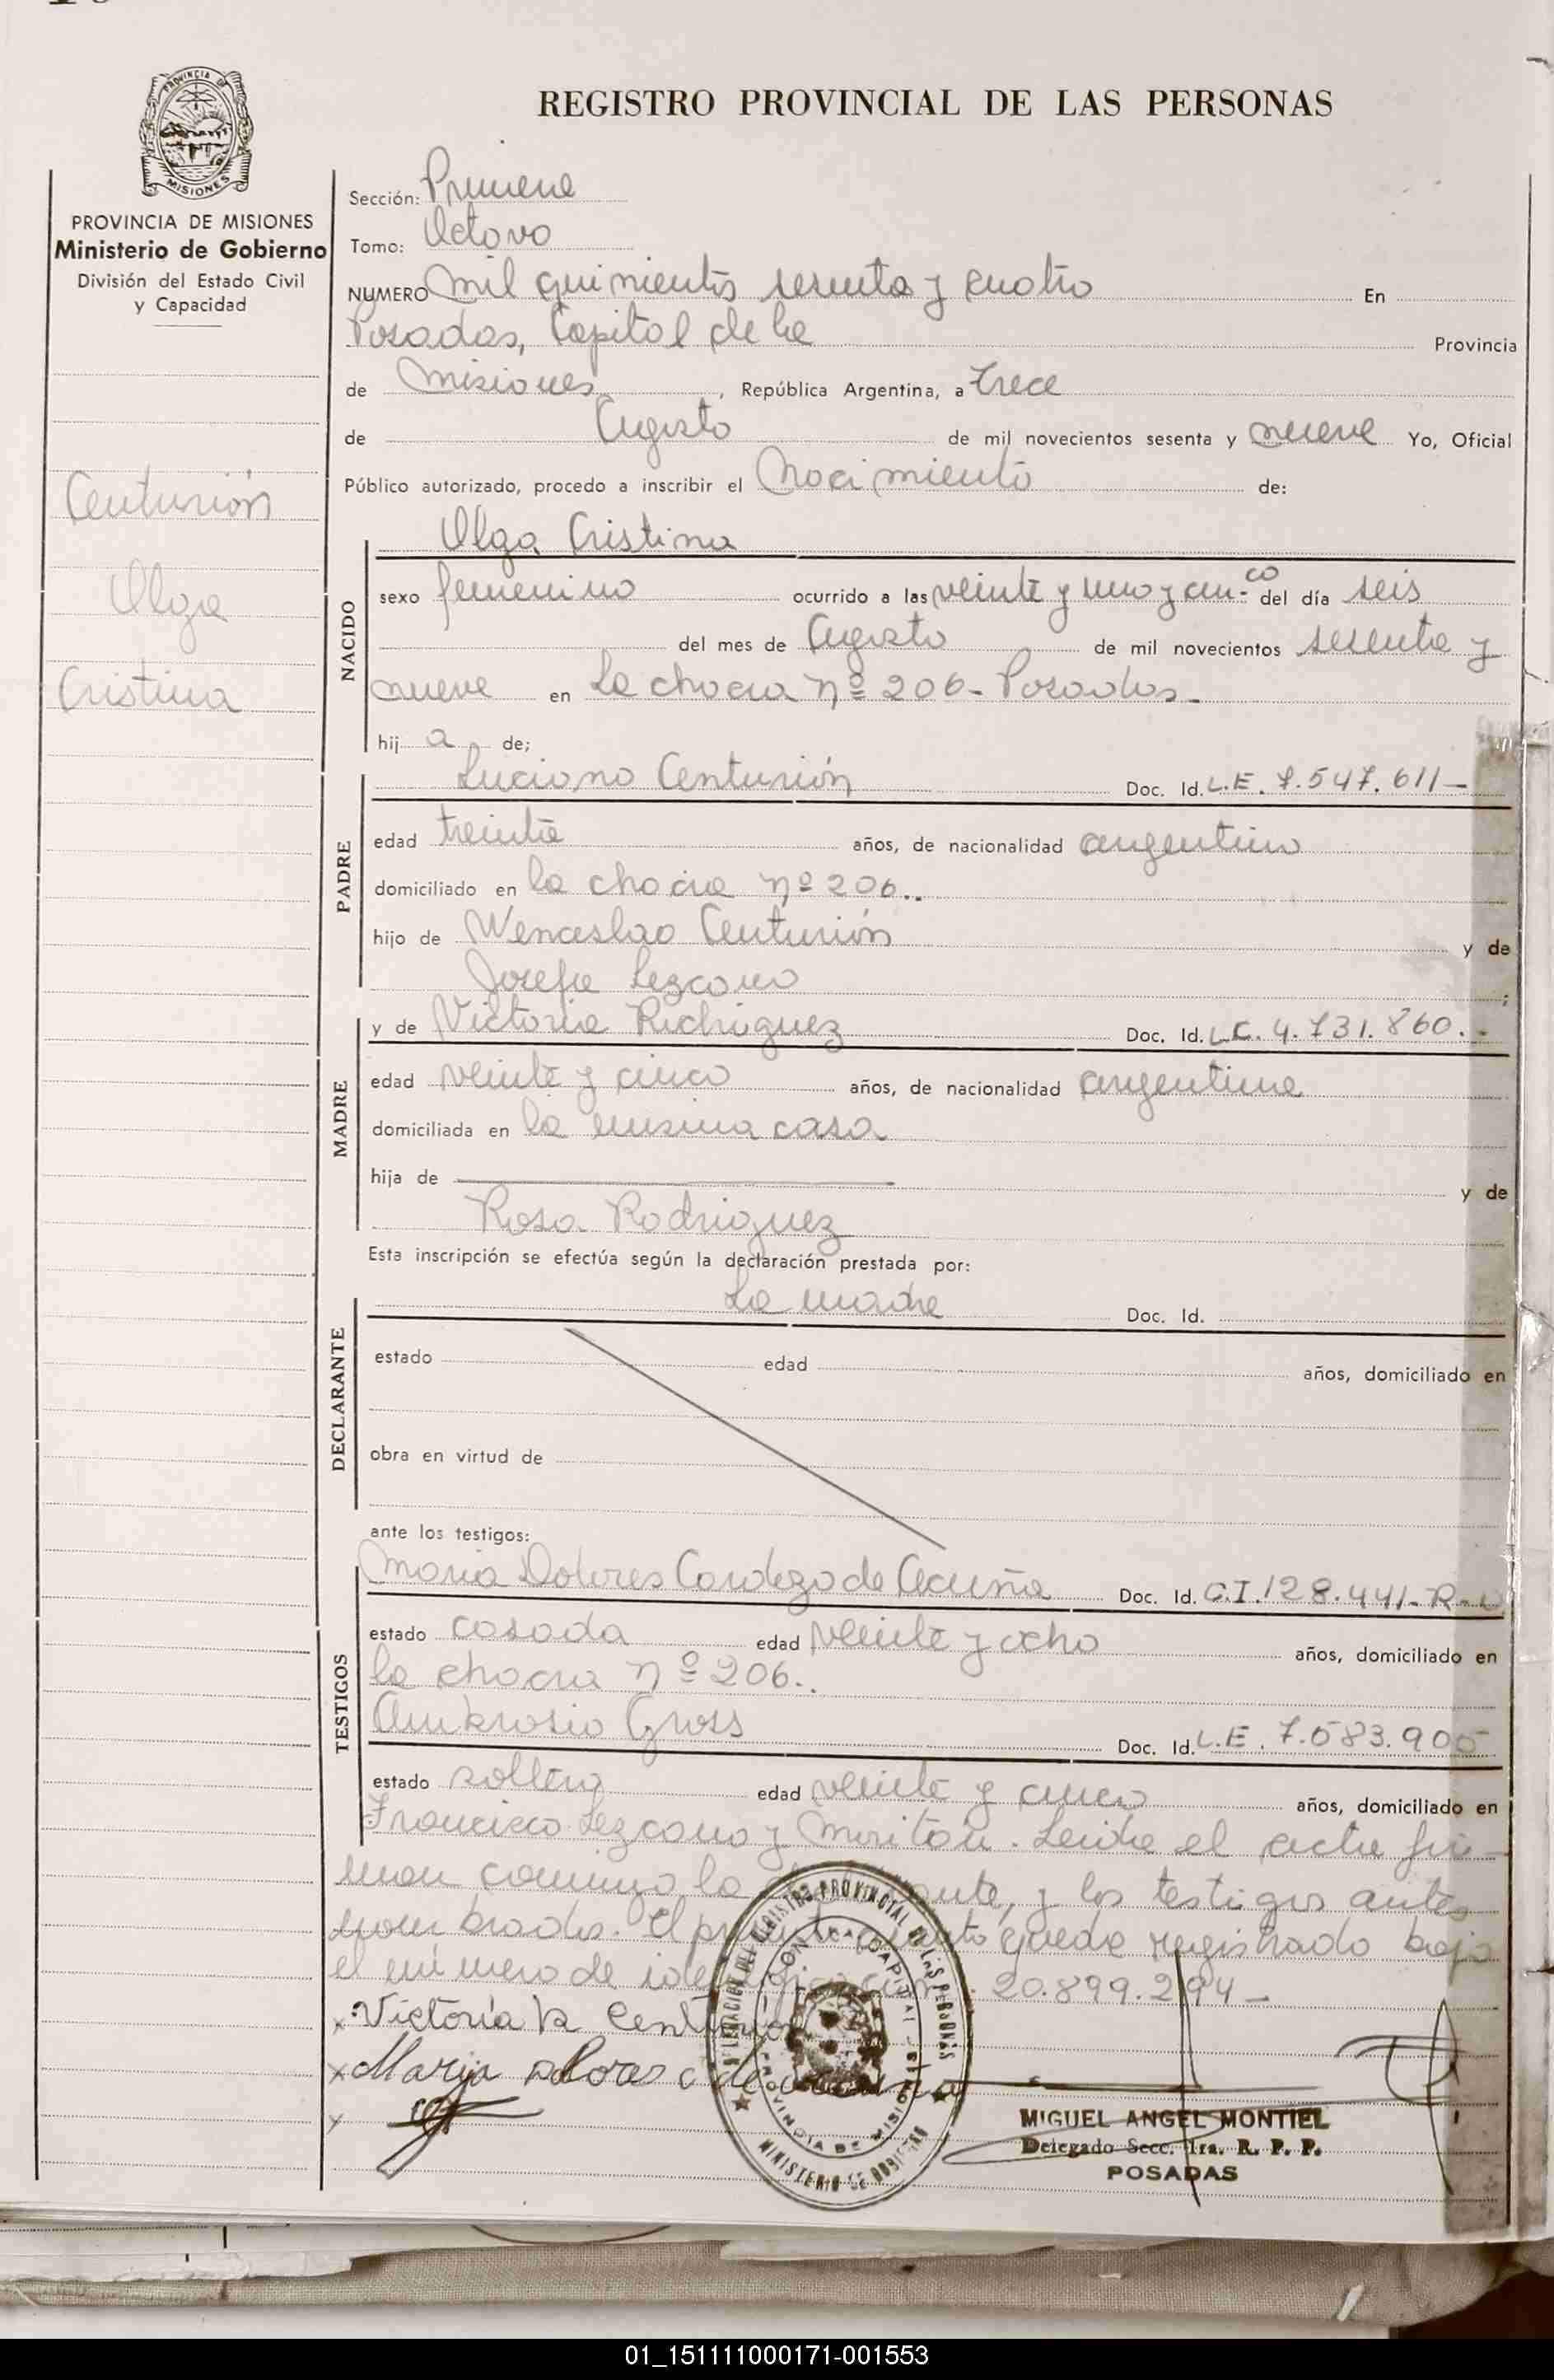 REGISTRO PROVINCIAL DE LAS PERSONAS
PROVINCIA DE
MISIONES
PROVINCIA DE MISIONES
Ministerio de Gobierno
División del Estado Civil
y Capacidad
Centurión
Olga
Cristina
Sección: Primera
Tomo: Octavo
NUMERO Mil quinientos sesenta y cuatro En
Posadas, Capital de la Provincia
de Misiones, República Argentina, a trece
de Agosto de mil novecientos sesenta y nueve Yo, Oficial
Público autorizado, procedo a inscribir el Nacimiento de:
NACIDO
Olga Cristina
sexo femenino ocurrido a las veinte y uno y cinco del día seis
del mes de Agosto de mil novecientos sesenta y
nueve en La chacra nº 206- Posadas-
hij a de;
PADRE
Luciano Centurión Doc. Id. L.E. 7.547.611-
edad treinta años, de nacionalidad argentino
domiciliado en la chacra nº 206..
hijo de Wenceslao Centurión y de
Josefa Lezcano ;
MADRE
y de Victoria Rodriguez Doc. Id. L.C. 4.731.860.-
edad veinte y cinco años, de nacionalidad argentina
domiciliada en la misma casa
hija de y de
Rosa Rodriguez
Esta inscripción se efectúa según la declaración prestada por:
DECLARANTE
La madre Doc. Id.
estado edad años, domiciliado en
obra en virtud de
ante los testigos:
TESTIGOS
Maria Dolores Cardozo de Acuña Doc. Id. C.I. 128.441-R-
estado casada edad veinte y ocho años, domiciliado en
la chacra nº 206..
Ambrosio Gross Doc. Id. L.E. 7.583.905
estado soltero edad veinte y cinco años, domiciliado en
Francisco Lezcano y Miritón. Leida el acta fir-
man conmigo la y los testigos antes
nombrados. El presente queda registrado bajo
el número de identificación 20.899.294-
x Victoria R Centurión
x Maria Dolores c de Acuña
x
DELEGACION DEL REGISTRO PROVINCIAL DE LAS PERSONAS
CAPITAL
PROVINCIA DE MISIONES
MINISTERIO DE GOBIERNO
MIGUEL ANGEL MONTIEL
Delegado Secc. 1ra. R. P. P.
POSADAS
01_151111000171-001553